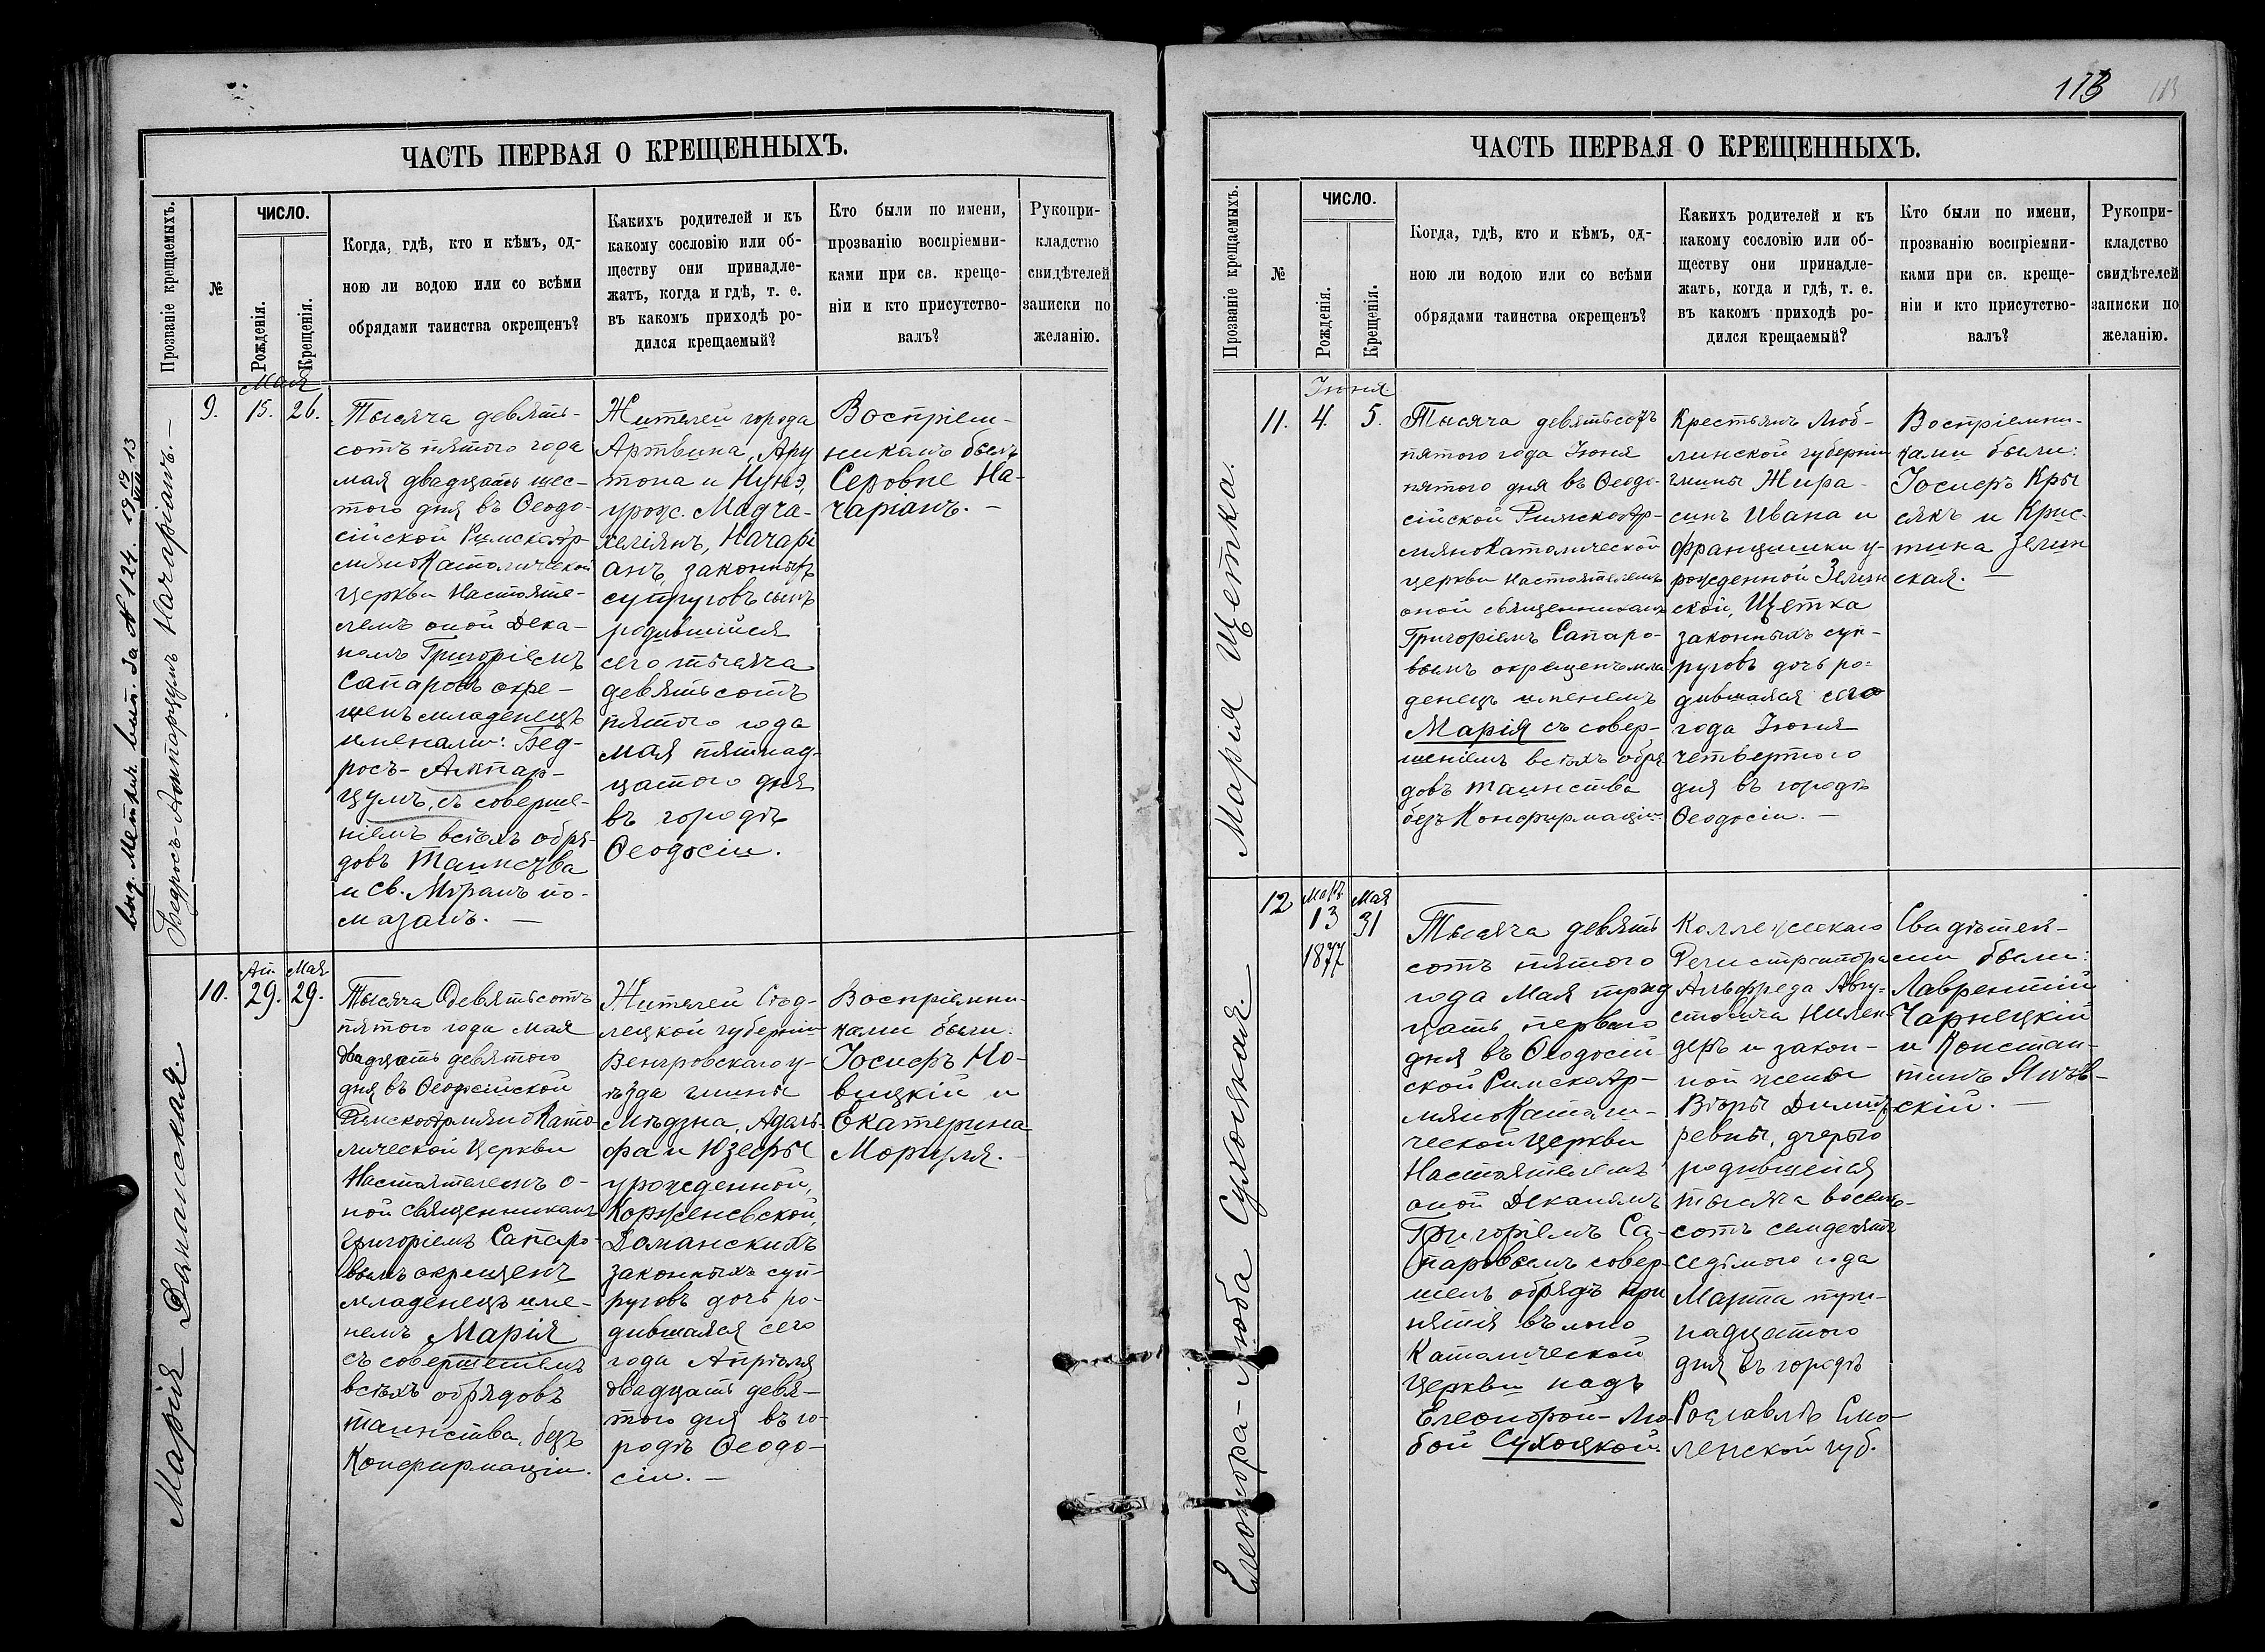 ЧАСТЬ ПЕРВАЯ О КРЕЩЕННЫХЪ.
Прозваніе крещаемыхъ.
№
ЧИСЛО.
Рожденія.
Крещенія.
Когда, гдѣ, кто и кѣмъ, од-
ною ли водою или со всѣми
обрядами таинства окрещенъ?
Какихъ родителей и къ
какому сословію или об-
ществу они принадле-
жатъ, когда и гдѣ, т. е.
въ какомъ приходѣ ро-
дился крещаемый?
Кто были по имени,
прозванію воспріемни-
ками при св. креще-
ніи и кто присутство-
валъ?
Рукопри-
кладство
свидѣтелей
записки по
желанію.
выд. Метрич. вып. За № 124. 19 19/VIII 13
Бедросъ-Ампарцумъ Начаріанъ. —
9.
Мая
15. 26.
Тысяча девять-
сотъ пятого года
мая двадцать шес-
того дня въ Ѳеодо-
сійской Римскоар-
мяноКатолической
церкви Настояте-
лемъ оной Дека-
номъ Григоріемъ
Сапаровъ окре-
щенъ младенецъ
именами: Бед-
росъ-Ампар-
цумъ, съ соверше-
ніемъ всѣхъ обря-
довъ Таинства
и св. Мѵромъ по-
мазанъ. —
Жителей города
Артвина, Ару
тюна и Нунэ,
урож. Мадча-
хеліянъ, Начарі
анъ, законныхъ
супруговъ сынъ
родившійся
сего тысяча
девятьсотъ
пятого года
мая пятнад-
цатого дня
въ городѣ
Ѳеодосіи.
Воспріем-
никомъ былъ
Серовпе На-
чаріанъ. —
Марія Доманская.
10.
Ап. Мая
29. 29.
Тысяча Девятьсотъ
пятого года мая
двадцать девятого
дня въ Ѳеодосійской
РимскоармяноКато-
лической Церкви
Настоятелемъ о-
ной священникомъ
Григоріемъ Сапаро-
вымъ окрещенъ
младенецъ име-
немъ Марія
съ совершеніемъ
всѣхъ обрядовъ
таинства, безъ
Конфирмаціи.
Жителей Сѣд-
лецкой губерніи
Венгровскаго у-
ѣзда гмины
Мѣдзна, Адоль-
фа и Юзефы
урожденной,
Корженевской,
Доманскихъ
законныхъ суп-
руговъ дочь ро-
дившаяся сего
года Апрѣля
двадцать девя-
того дня въ го-
родѣ Ѳеодо-
сіи. —
Воспріемни-
ками были:
Іосифъ Но-
вицкій и
Екатерина
113
ЧАСТЬ ПЕРВАЯ О КРЕЩЕННЫХЪ.
Прозваніе крещаемыхъ.
№
ЧИСЛО.
Рожденія.
Крещенія.
Когда, гдѣ, кто и кѣмъ, од-
ною ли водою или со всѣми
обрядами таинства окрещенъ?
Какихъ родителей и къ
какому сословію или об-
ществу они принадле-
жатъ, когда и гдѣ, т. е.
въ какомъ приходѣ ро-
дился крещаемый?
Кто были по имени,
прозванію воспріемни-
ками при св. креще-
ніи и кто присутство-
валъ?
Рукопри-
кладство
свидѣтелей
записки по
желанію.
Марія Щетка.
11.
Іюня.
4. 5.
Тысяча девятьсотъ
пятого года Іюня
пятого дня въ Ѳеодо-
сійской Римскоар-
мяноКатолической
церкви настоятелемъ
оной священникомъ
Григоріемъ Сапаро-
вымъ окрещенъ мла-
денецъ именемъ
Марія съ совер-
шеніемъ всѣхъ обря
довъ таинства
безъ Конфирмаціи.
Крестьянъ Люб-
линской губерніи
гмины Жира-
синъ Ивана и
Францишки у-
рожденной Зелин
ской, Щетка
законныхъ суп-
руговъ дочь ро-
дившаяся сего
года Іюня
четвертого
дня въ городѣ
Ѳеодосіи. —
Воспріемни-
ками были:
Іосифъ Кры
сякъ и Крис-
тина Зелин
ская. —
Елеонора-Люба Сухоцкая.
12
Март. Мая
13 31
1877
Тысяча девять
сотъ пятого
года Мая трид
цать первого
дня въ Ѳеодосій-
ской Римскоар-
мяноКатоли-
ческой Церкви
Настоятелемъ
оной Деканомъ
Григоріемъ Са-
паровымъ совер-
шенъ обрядъ при
нятія въ лоно
Католической
Церкви надъ
Елеонорой-Лю-
бой Сухоцкой.
Коллежскаго
Регистратора
Альфреда Авгу-
стовича Нилен-
деръ и закон-
ной жены
Вѣры Димит-
ревны, дчерью
родившейся
тысяча восемь-
сотъ семдесятъ
седьмого года
Марта три-
надцатого
дня въ городѣ
Рославлѣ Смо-
ленской губ.
Свидѣтеля-
ми были:
Лаврентій
Чарнецкій
и Констан-
тинъ
скій. —